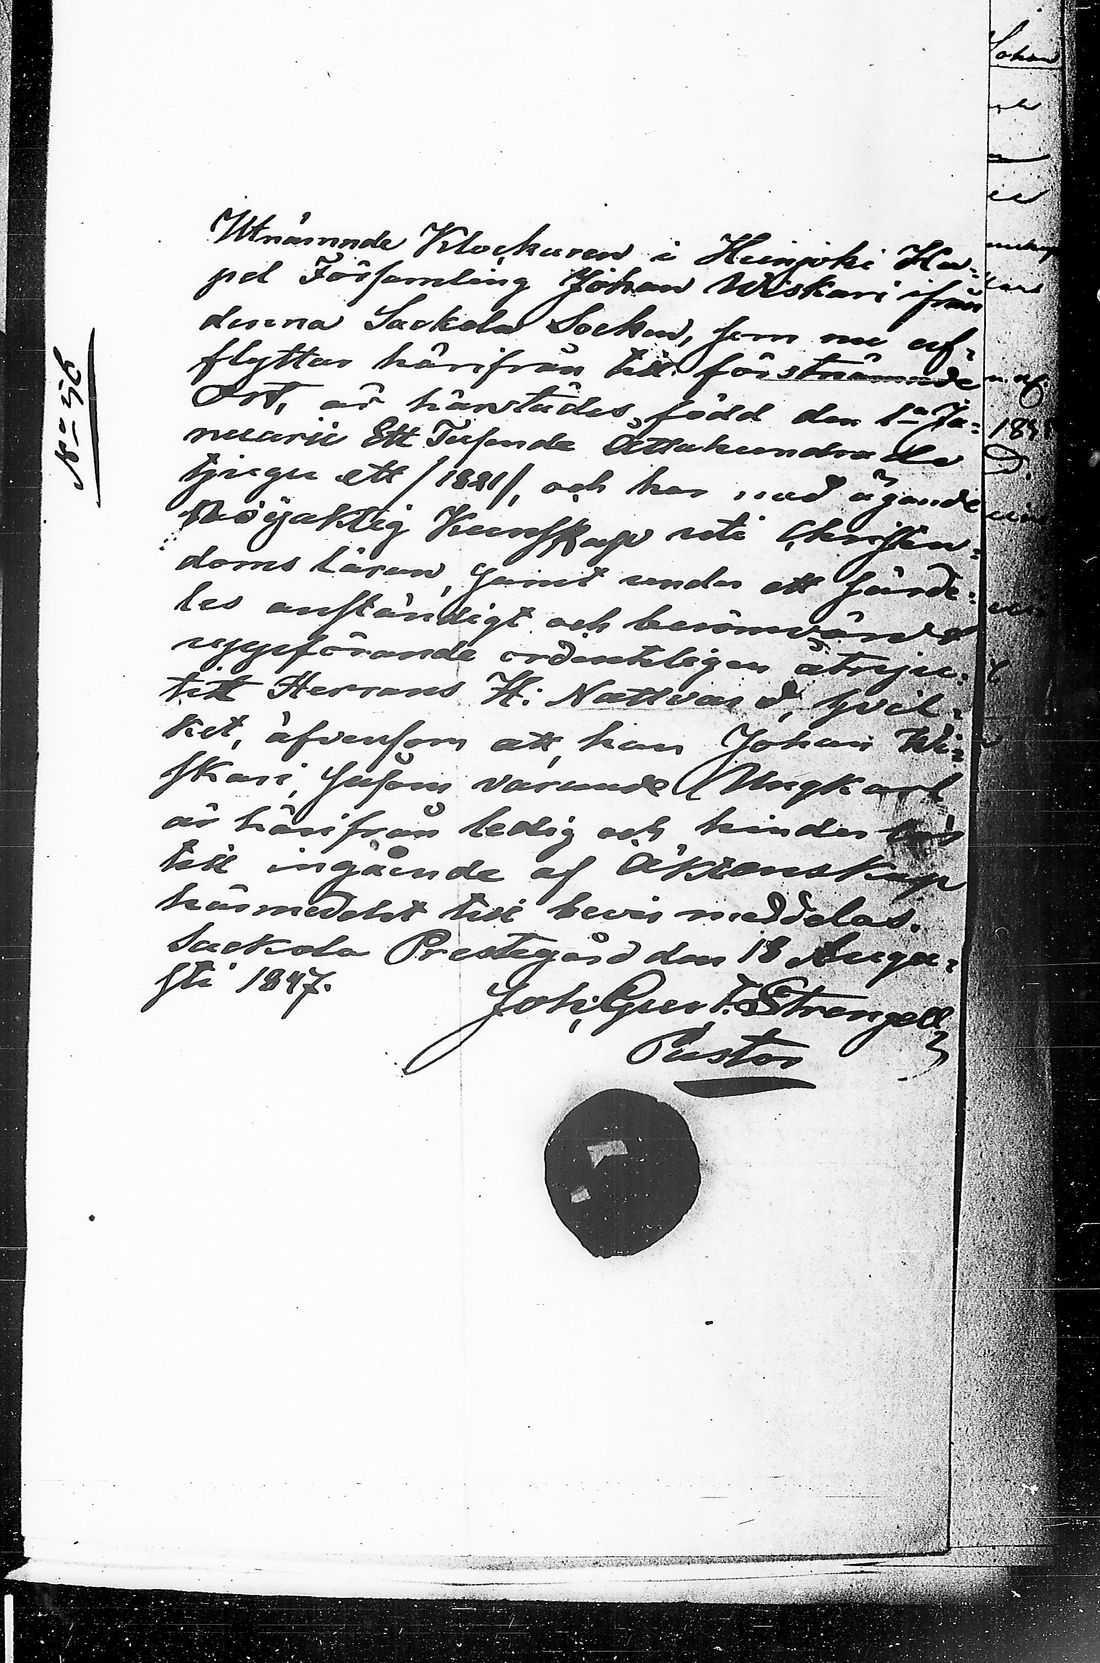 No 56
Utnämnde Klockaren i Heinjoki Ka-
pel Församling Johan Wiskari ifrån
denna Sackola Socken, som nu af-
flyttar härifrån till förstnämnde
Ort, är härstädes född den 1a Ja-
nuarii Ett Tusende Åttahundrade
tjugu ett /1821/, och har med ägande
Nöyaktig Kunskap uti Christen-
doms läran, samt under ett särde-
les anständigt och berömvärdt
uppförande ordenteligen åtnju-
tit Herrans H: Nattvard, hvil-
ket, äfvensom att han Johan Wi-
skari, såsom varande Ungkarl
är härifrån ledig och hinder lös
till ingående af Äktenskap
härmedelst till bevis meddelas.
Sackola Prestegård den 18 Augu-
sti 1847.
Joh: Gust. F. Strengell
Pastor
Johan
184